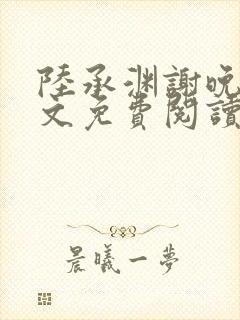 陸承淵謝晚
文免費閱讀
晨曦一夢